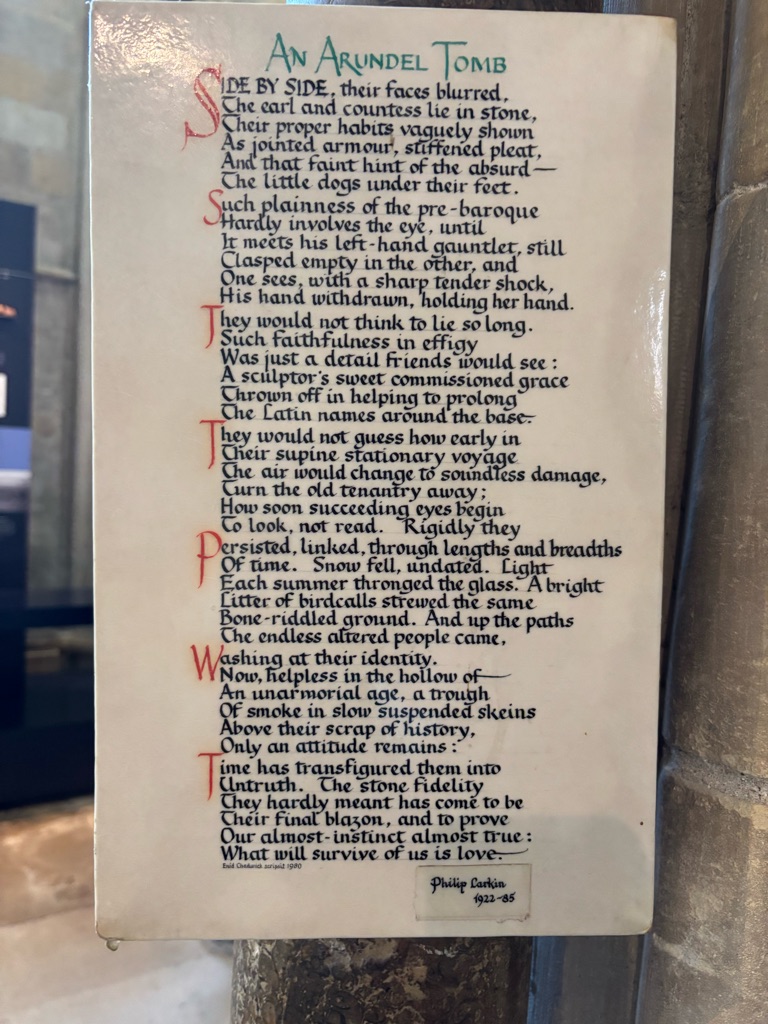 AN ARUNDEL TOMB
SIDE BY SIDE, their faces blurred,
The earl and countess lie in stone,
Their proper habits vaguely shown
As jointed armour, stiffened pleat,
And that faint hint of the absurd—
The little dogs under their feet.
Such plainness of the pre-baroque
Hardly involves the eye, until
It meets his left-hand gauntlet, still
Clasped empty in the other, and
One sees, with a sharp tender shock,
His hand withdrawn, holding her hand.
They would not think to lie so long.
Such faithfulness in effigy
Was just a detail friends would see:
A sculptor's sweet commissioned grace
Thrown off in helping to prolong
The Latin names around the base.
They would not guess how early in
Their supine stationary voyage
The air would change to soundless damage,
Turn the old tenantry away;
How soon succeeding eyes begin
To look, not read. Rigidly they
Persisted, linked, through lengths and breadths
Of time. Snow fell, undated. Light
Each summer thronged the glass. A bright
Litter of birdcalls strewed the same
Bone-riddled ground. And up the paths
The endless altered people came,
Washing at their identity.
Now, helpless in the hollow of
An unarmorial age, a trough
Of smoke in slow suspended skeins
Above their scrap of history,
Only an attitude remains:
Time has transfigured them into
Untruth. The stone fidelity
They hardly meant has come to be
Their final blazon, and to prove
Our almost-instinct almost true:
What will survive of us is love.
Enid Chadwick scripsit 1980
Philip Larkin
1922-85